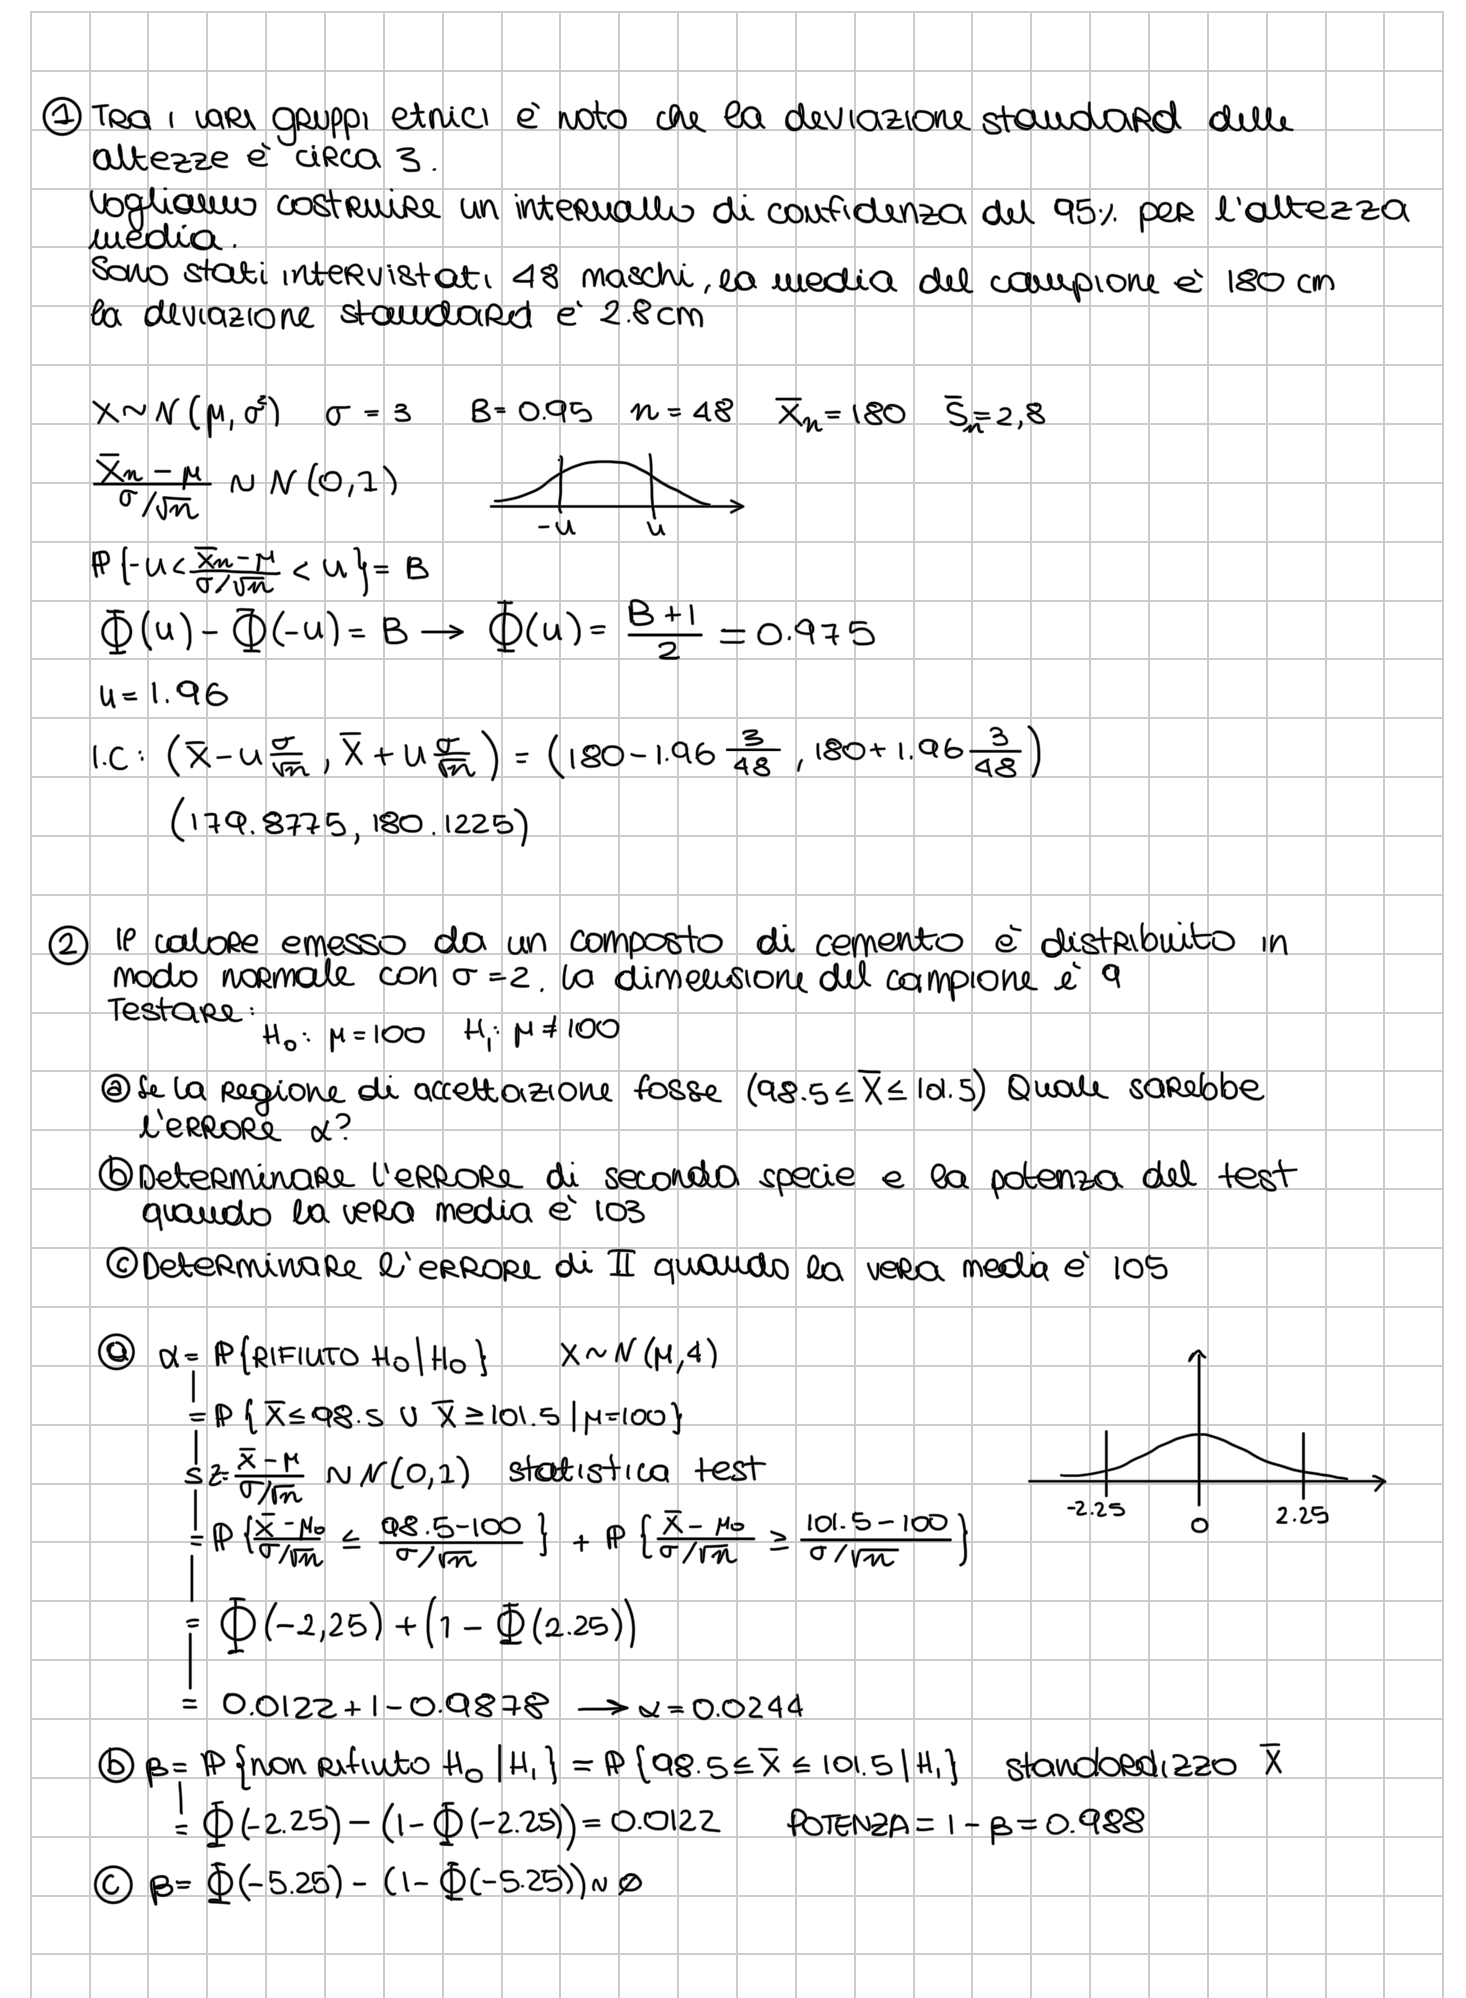 ① Tra i vari gruppi etnici è noto che la deviazione standard delle
altezze è circa 3.
Vogliamo costruire un intervallo di confidenza del 95% per l'altezza
media.
Sono stati intervistati 48 maschi, la media del campione è 180 cm
la deviazione standard è 2.8cm
X~N(μ,σ²) σ = 3 B=0.95 n=48 X̄n=180 S̄n=2,8
(X̄n-μ)/(σ/√n) ~ N(0,1)
-u u
ℙ{-u<(X̄n-μ)/(σ/√n)<u}=B
Φ(u)-Φ(-u)=B → Φ(u)=(B+1)/2=0.975
u=1.96
I.C: (X̄-u σ/√n, X̄+u σ/√n) = (180-1.96 3/48, 180+1.96 3/48)
(179.8775, 180.1225)
② Il calore emesso da un composto di cemento è distribuito in
modo normale con σ=2. La dimensione del campione è 9
Testare:
H₀: μ=100 H₁: μ≠100
ⓐ Se la regione di accettazione fosse (98.5≤X̄≤101.5) Quale sarebbe
l'errore α?
ⓑ Determinare l'errore di seconda specie e la potenza del test
quando la vera media è 103
ⓒ Determinare l'errore di II quando la vera media è 105
ⓐ α=ℙ{RIFIUTO H₀|H₀} X~N(μ,4)
=ℙ{X̄≤98.5 ∪ X̄≥101.5|μ=100}
(X̄-μ)/(σ/√n) ~N(0,1) statistica test
-2.25 0 2.25
=ℙ{(X̄-μ₀)/(σ/√n) ≤ (98.5-100)/(σ/√n)} + ℙ{(X̄-μ₀)/(σ/√n) ≥ (101.5-100)/(σ/√n)}
= Φ(-2,25)+(1-Φ(2.25))
= 0.0122+1-0.9878 → α=0.0244
ⓑ β=ℙ{non rifiuto H₀|H₁}=ℙ{98.5≤X̄≤101.5|H₁} standardizzo X̄
= Φ(-2.25)-(1-Φ(-2.25))=0.0122 POTENZA=1-β=0.988
ⓒ β=Φ(-5.25)-(1-Φ(-5.25))~∅